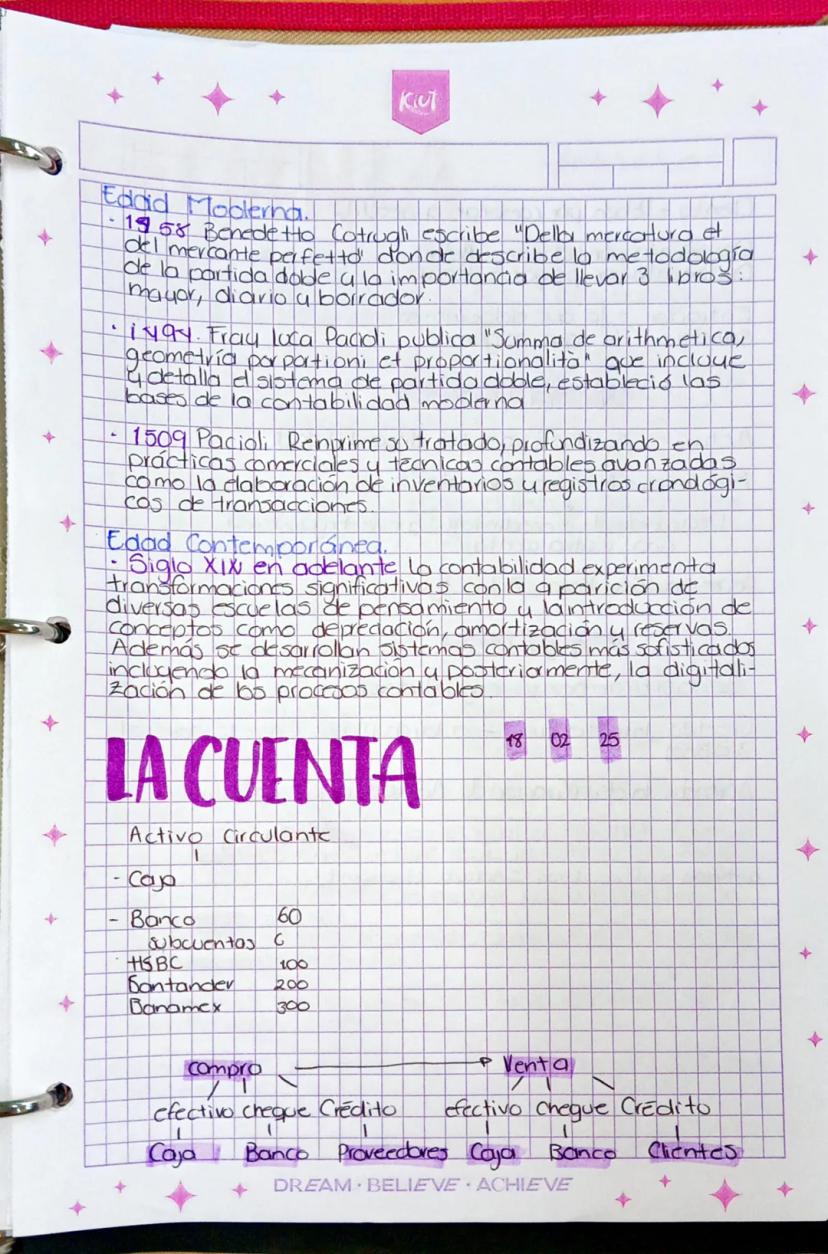 Kiut
Edad Moderna.
· 1958 Benedetto Cotrugli escribe "Della mercatura et
del mercante perfetto" donde describe la metodología
de la partida doble y la importancia de llevar 3 libros:
mayor, diario y borrador.
· 1494. Fray luca Pacioli publica "Summa de arithmetica,
geometría porportioni et proportionalità" que incluye
y detalla el sistema de partida doble, estableció las
bases de la contabilidad moderna
· 1509 Pacioli Renprime su tratado, profundizando en
prácticas comerciales y técnicas contables avanzadas
como la elaboración de inventarios y registros cronológi-
cos de transacciones.
Edad Contemporánea.
· Siglo XIX en adelante la contabilidad experimenta
transformaciones significativas con la aparición de
diversas escuelas de pensamiento y la introducción de
conceptos como depreciación, amortización y reservas.
Además se desarrollan sistemas contables más sofisticados
incluyendo la mecanización y posteriormente, la digitali-
zación de los procesos contables.
LA CUENTA 18 02 25
Activo Circulante
- Caja
- Banco 60
subcuentas C
HSBC 100
Santander 200
Banamex 300
compra → Venta
efectivo cheque Crédito efectivo cheque Crédito
Caja Banco Proveedores Caja Banco Clientes
DREAM · BELIEVE · ACHIEVE